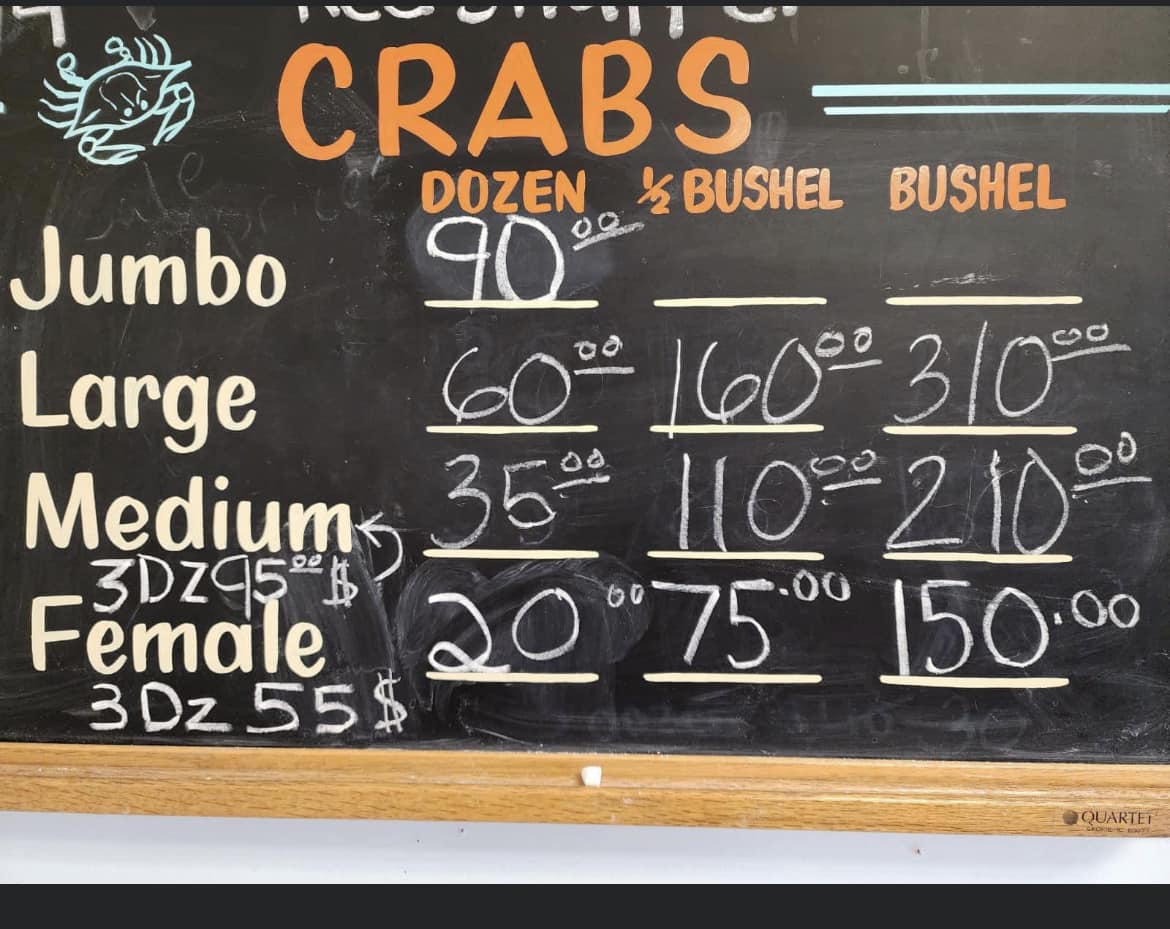 CRABS
DOZEN ½ BUSHEL BUSHEL
Jumbo 90 00
Large 60 00 160 00 310 00
Medium 35 00 110 00 210 00
3DZ 95 00 $
Female 20 00 75.00 150.00
3Dz 55$
QUARTET